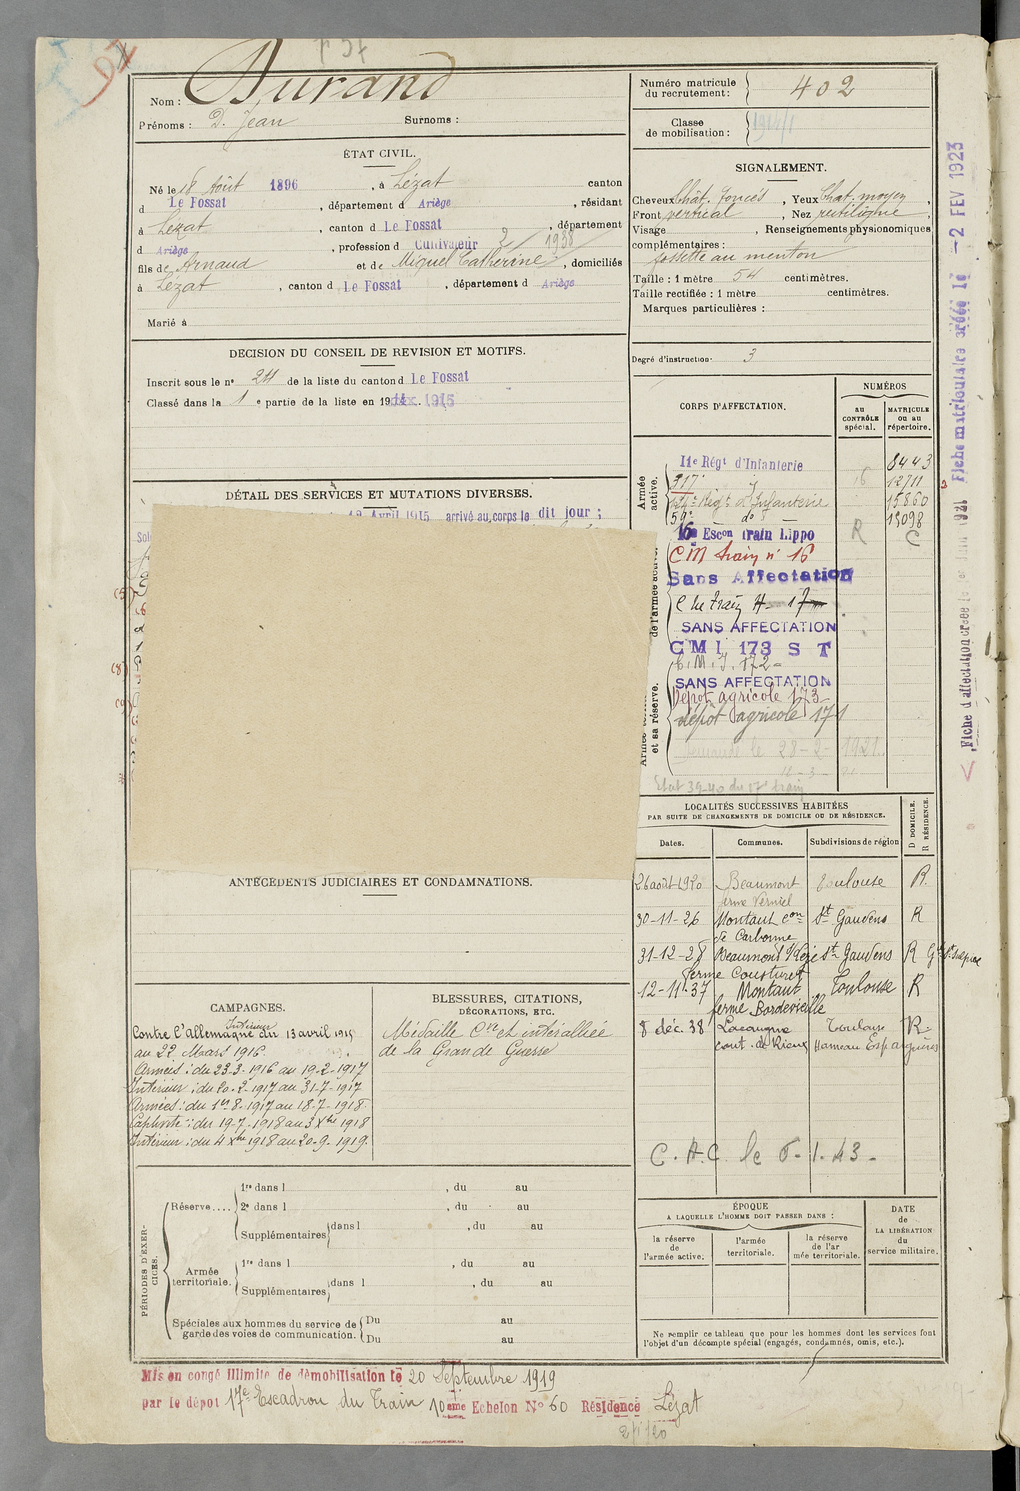 Nom : Durand
Prénoms : D. Jean Surnoms :
ÉTAT CIVIL.
Né le 18 Août 1896, à Lézat canton
d Le Fossat, département d Ariège, résidant
à Lézat, canton d Le Fossat, département
d Ariège, profession d Cultivateur
fils de Arnaud et de Miquel Catherine, domiciliés
à Lézat, canton d Le Fossat, département d Ariège
Marié à
DÉCISION DU CONSEIL DE REVISION ET MOTIFS.
Inscrit sous le nº 24 de la liste du canton d Le Fossat
Classé dans la 1 e partie de la liste en 1915
DÉTAIL DES SERVICES ET MUTATIONS DIVERSES.
12 Avril 1915 arrivé au corps le dit jour ;
ANTÉCÉDENTS JUDICIAIRES ET CONDAMNATIONS.
CAMPAGNES.
Intérieur
Contre l'Allemagne du 13 avril 1915
au 22 Mars 1916.
Armées : du 23-3-1916 au 19-2-1917
Intérieur : du 20-2-1917 au 31-7-1917
Armées : du 1er 8-1917 au 18-7-1918.
Captivité : du 19-7-1918 au 3 Xbre 1918
Intérieur : du 4 Xbre 1918 au 20-9-1919.
BLESSURES, CITATIONS,
DÉCORATIONS, ETC.
Médaille Cve et interalliée
de la Grande Guerre
PÉRIODES D'EXERCICES.
Réserve....
1re dans l , du au
2e dans l , du au
Supplémentaires dans l , du au
Armée
territoriale.
1re dans l , du au
Supplémentaires dans l , du au
Spéciales aux hommes du service de
garde des voies de communication.
Du au
Du au
Mis en congé illimité de démobilisation le 20 Septembre 1919
par le dépôt 17e Escadron du Train 10ème Echelon Nº 60 Résidence Lézat
Numéro matricule
du recrutement : 402
Classe
de mobilisation : 1914/1
SIGNALEMENT.
Cheveux Chât. foncés, Yeux Chat. moyen,
Front vertical, Nez rectiligne,
Visage , Renseignements physionomiques
complémentaires :
fossette au menton
Taille : 1 mètre 54 centimètres.
Taille rectifiée : 1 mètre centimètres.
Marques particulières :
Degré d'instruction 3
CORPS D'AFFECTATION.
NUMÉROS
au
CONTRÔLE
spécial.
MATRICULE
ou au
répertoire.
Armée
active.
11e Régt d'Infanterie 8443
317e 16 12711
Régt d'Infanterie 15860
59e dº 13098
16e Escon train Hippo R C
CM train nº 16
Sans Affectation
C du train 17
SANS AFFECTATION
CMI 173 S T
C.M.I. 172
SANS AFFECTATION
Dépôt agricole 173
dépôt agricole 171
de l'armée active.
et sa réserve.
le 28-2-1921.
LOCALITÉS SUCCESSIVES HABITÉES
PAR SUITE DE CHANGEMENTS DE DOMICILE OU DE RÉSIDENCE.
Dates. Communes. Subdivisions de région D DOMICILE. R RÉSIDENCE.
26 août 1920 Beaumont Toulouse R.
ferme Verniel
30-11-26 Montaut con St Gaudens R
de Carbonne
31-12-28 Beaumont s/Lèze St Gaudens R
ferme Cousturet
12-11-37 Montaut Toulouse R
ferme Bordevieille
8 déc. 38 Lacaugne Toulouse R.
cont. de Rieux Hameau Espanguières
C.A.C. le 6-1.43-
ÉPOQUE
A LAQUELLE L'HOMME DOIT PASSER DANS :
la réserve
de
l'armée active.
l'armée
territoriale.
la réserve
de l'ar
mée territoriale.
DATE
de
LA LIBÉRATION
du
service militaire.
Ne remplir ce tableau que pour les hommes dont les services font
l'objet d'un décompte spécial (engagés, condamnés, omis, etc.).
Fiche matriculaire créée le -2 FEV 1923
Fiche d'affectation créée le